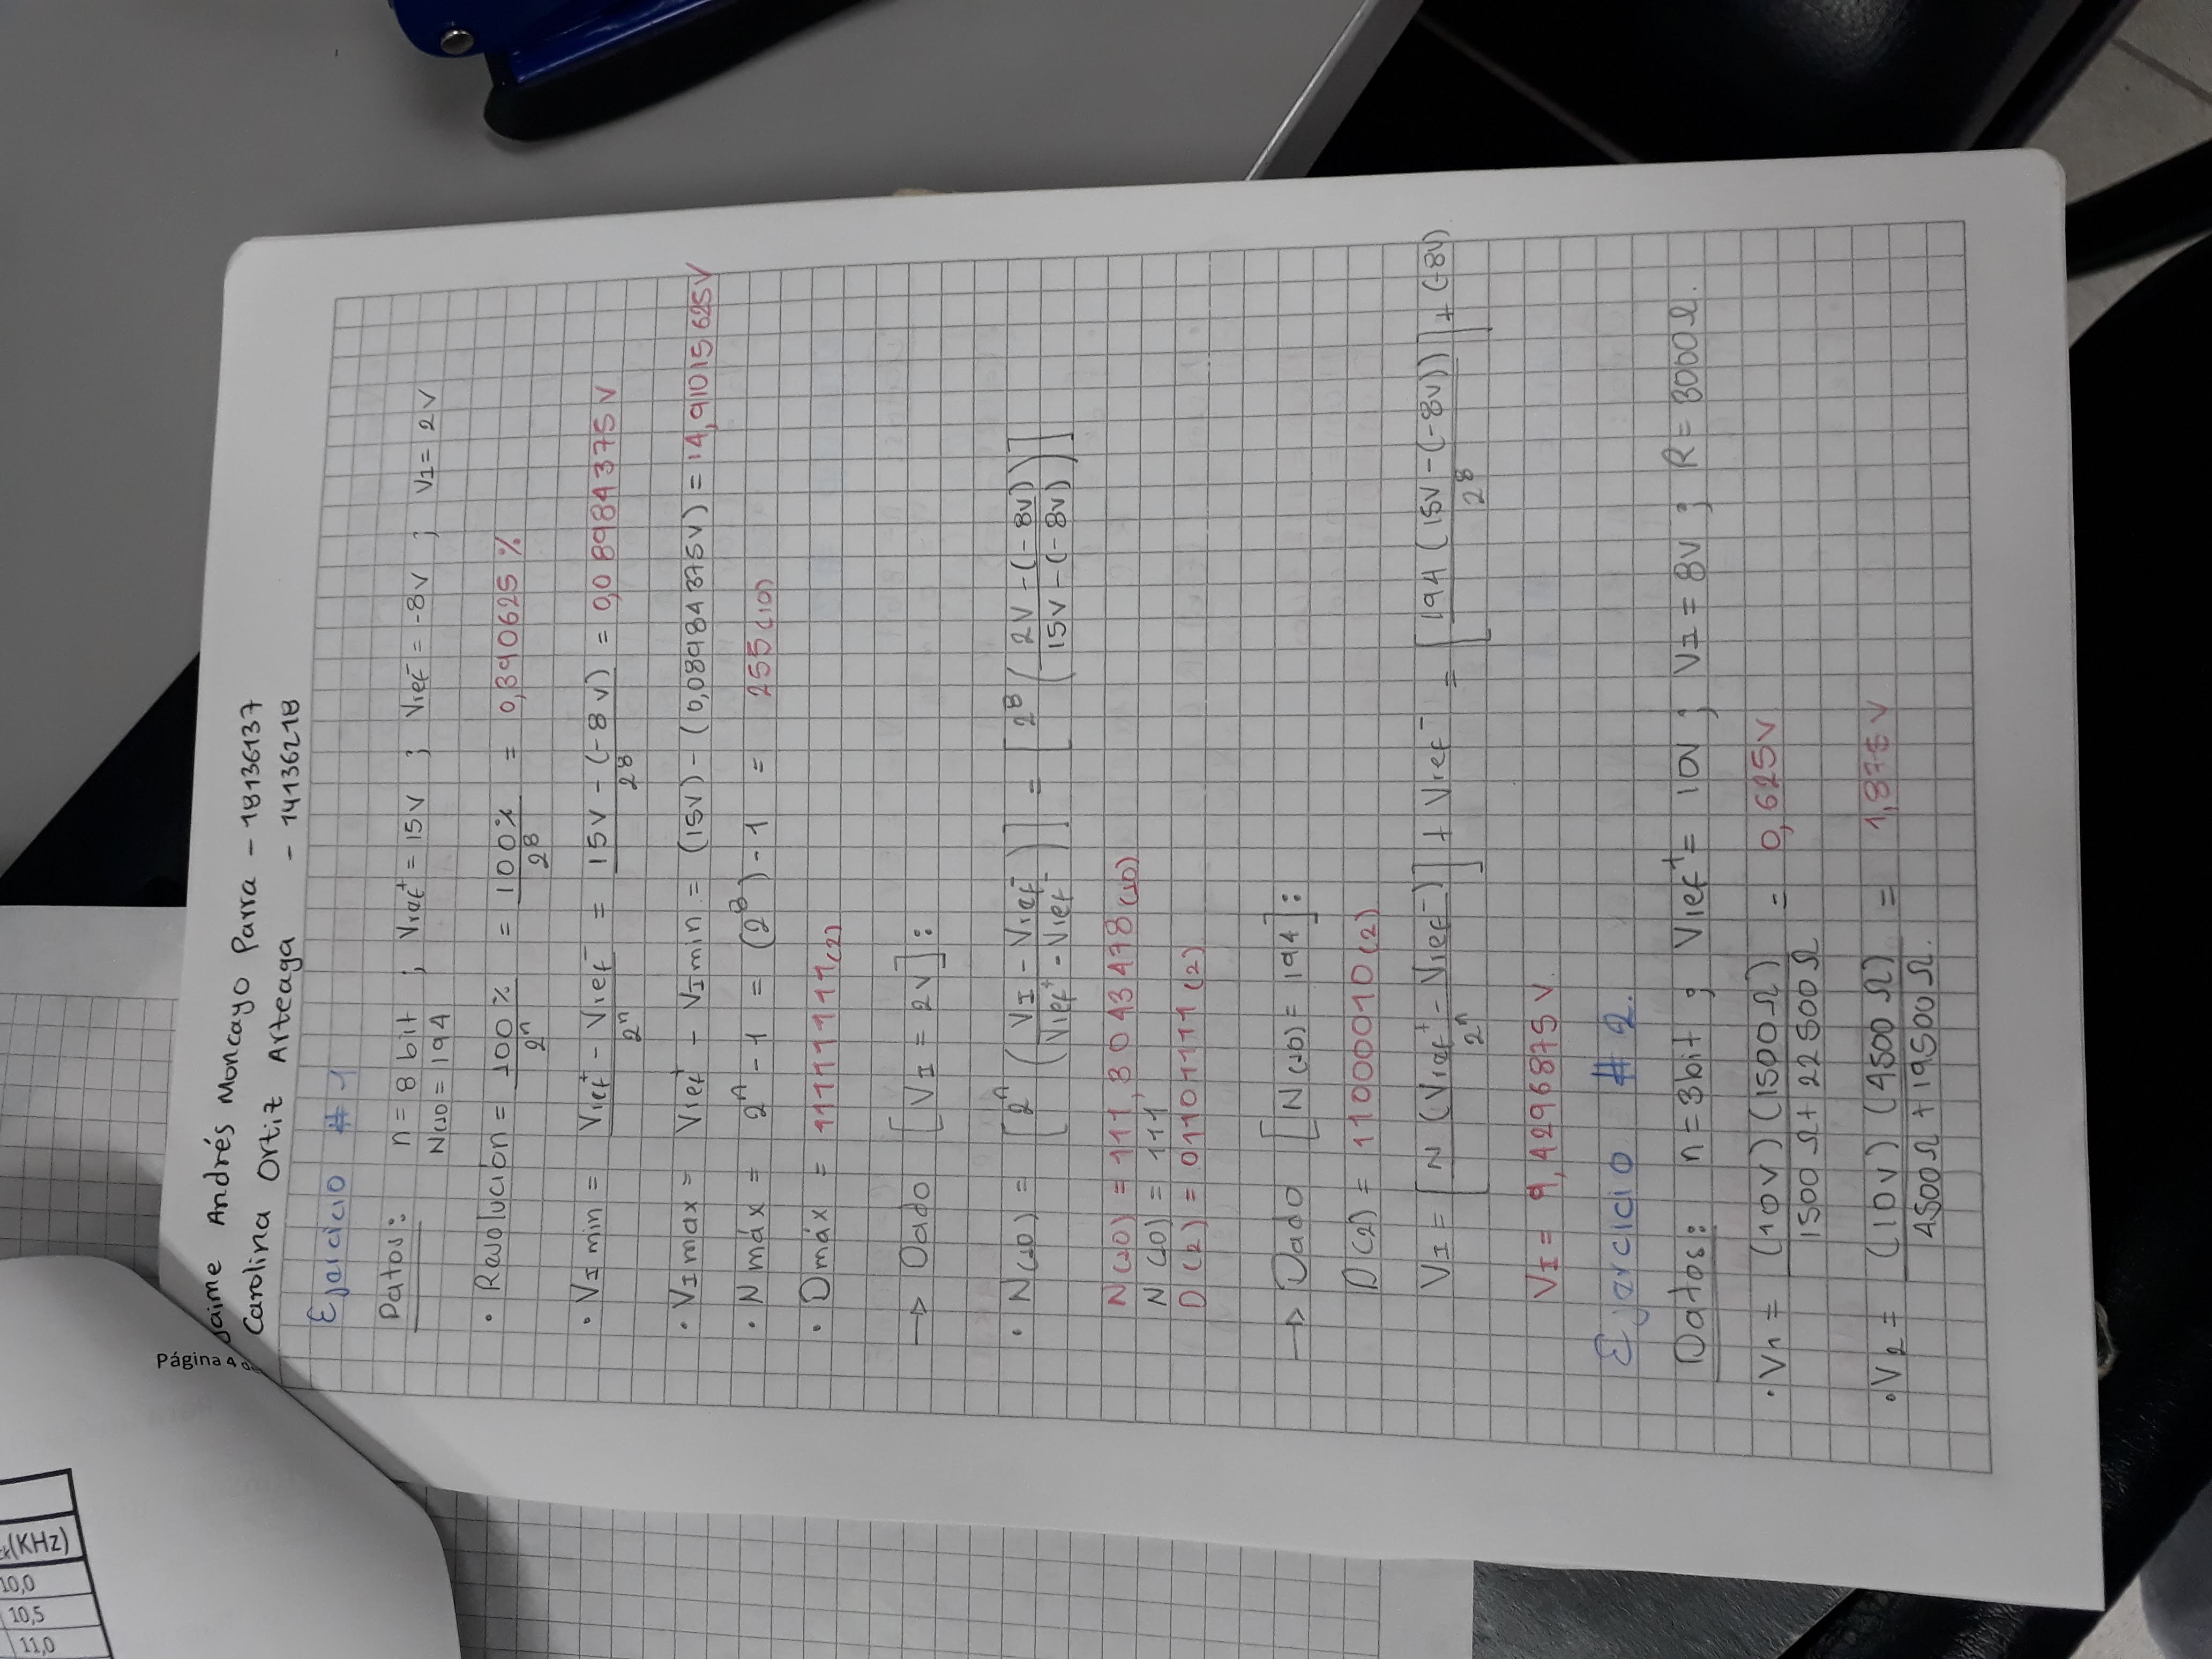 x(KHz)
10,0
10,5
11,0
Página 4 d
Jaime Andrés Moncayo Parra - 18136137
Carolina Ortiz Arteaga - 14136218
Ejercicio # 1
Datos: n = 8 bit ; Vref⁺ = 15V ; Vref⁻ = -8V ; VI = 2V
N(10) = 194
• Resolución = 100% / 2ⁿ = 100% / 2⁸ = 0,390625 %
• VI min = (Vref⁺ - Vref⁻) / 2ⁿ = (15V - (-8V)) / 2⁸ = 0,08984375V
• VI max = Vref⁺ - VI min = (15V) - (0,08984375V) = 14,91015625V
• N máx = 2ⁿ - 1 = (2⁸) - 1 = 255(10)
• Dmáx = 11111111(2)
→ Dado [VI = 2V]:
• N(10) = [2ⁿ ((VI - Vref⁻) / (Vref⁺ - Vref⁻))] = [2⁸ ((2V - (-8V)) / (15V - (-8V)))]
N(10) = 111,3043478(10)
N(10) = 111
D(2) = 01101111(2)
→ Dado [N(10) = 194]:
D(2) = 11000010(2)
VI = [N (Vref⁺ - Vref⁻) / 2ⁿ] + Vref⁻ = [194 (15V - (-8V)) / 2⁸] + (-8V)
VI = 9,4296875V.
Ejercicio # 2.
Datos: n = 3bit ; Vref⁺ = 10V ; VI = 8V ; R = 3000Ω.
• V1 = (10V)(1500Ω) / 1500Ω + 22500Ω = 0,625V
• V2 = (10V)(4500Ω) / 4500Ω + 19500Ω. = 1,875V